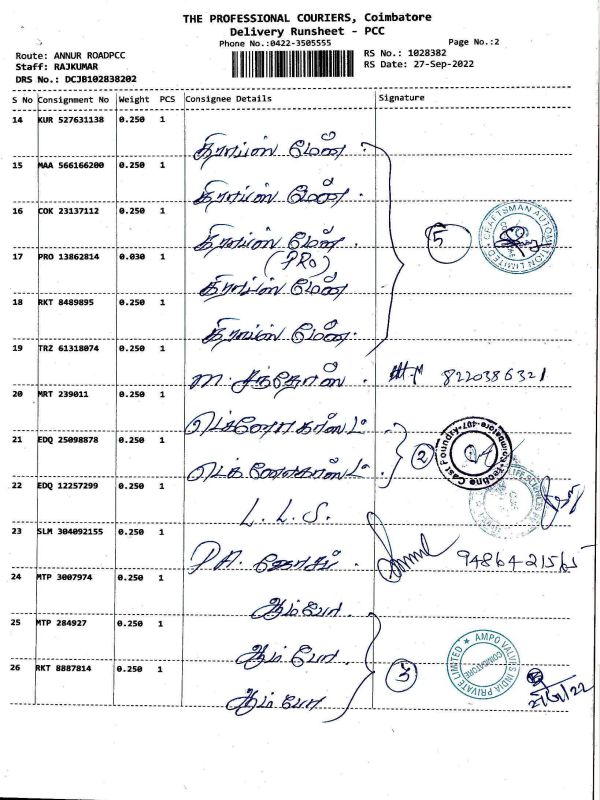 THE PROFESSIONAL COURIERS, Coimbatore
Delivery Runsheet - PCC
Phone No.:0422-3505555
Page No.:2
Route: ANNUR ROADPCC
RS No.: 1028382
Staff: RAJKUMAR
RS Date: 27-Sep-2022
DRS No.: DCJB102838202
S No Consignment No Weight PCS Consignee Details Signature
14 KUR 527631138 0.250 1
கிராப்ஸ் மேன்
15 MAA 566166200 0.250 1
கிராப்ஸ் மேன்
16 COK 23137112 0.250 1
கிராப்ஸ் மேன்
5
CRAFTSMAN AUTOMATION LIMITED
17 PRO 13862814 0.030 1
(PRO)
கிராப்ஸ் மேன்
18 RKT 8489895 0.250 1
கிராப்ஸ் மேன்
19 TRZ 61318074 0.250 1
m. சந்தோஸ். 8220386321
20 MRT 239011 0.250 1
டெக்னோகாஸ்ட்
21 EDQ 25098878 0.250 1
2
டெக்னோகாஸ்ட்
22 EDQ 12257299 0.250 1
L. L. S.
23 SLM 304092155 0.250 1
P.A. 
24 MTP 3007974 0.250 1
ஆம்போ
25 MTP 284927 0.250 1
ஆம்போ
3
AMPO VALVES INDIA PRIVATE LIMITED
COIMBATORE
26 RKT 8887814 0.250 1
ஆம்போ